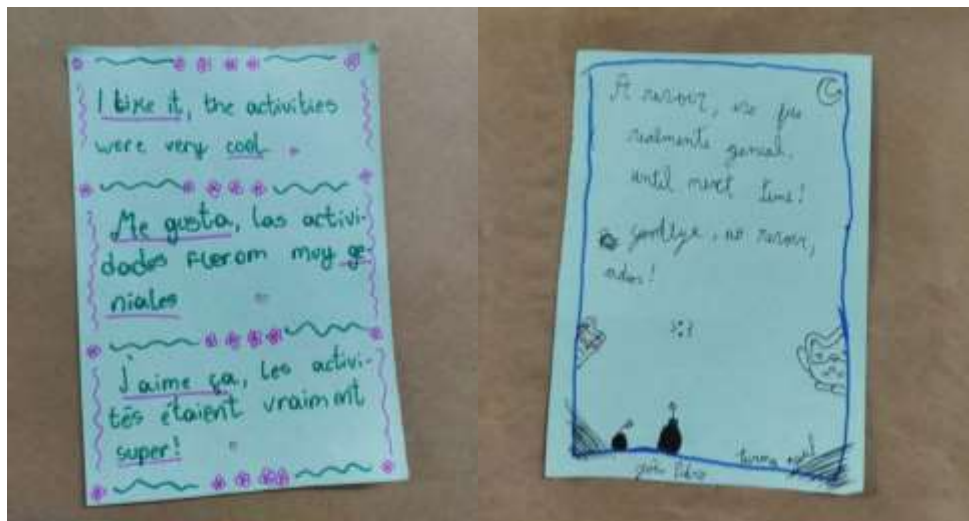 I like it, the activities
were very cool
Me gusta, las activi-
dades fuerom muy ge-
niales
J'aime ça, les activi-
tés étaient vraiment
super!
A revoir, eso fue
realmente genial.
until next time!
goodbye, au revoir,
adios!
turma